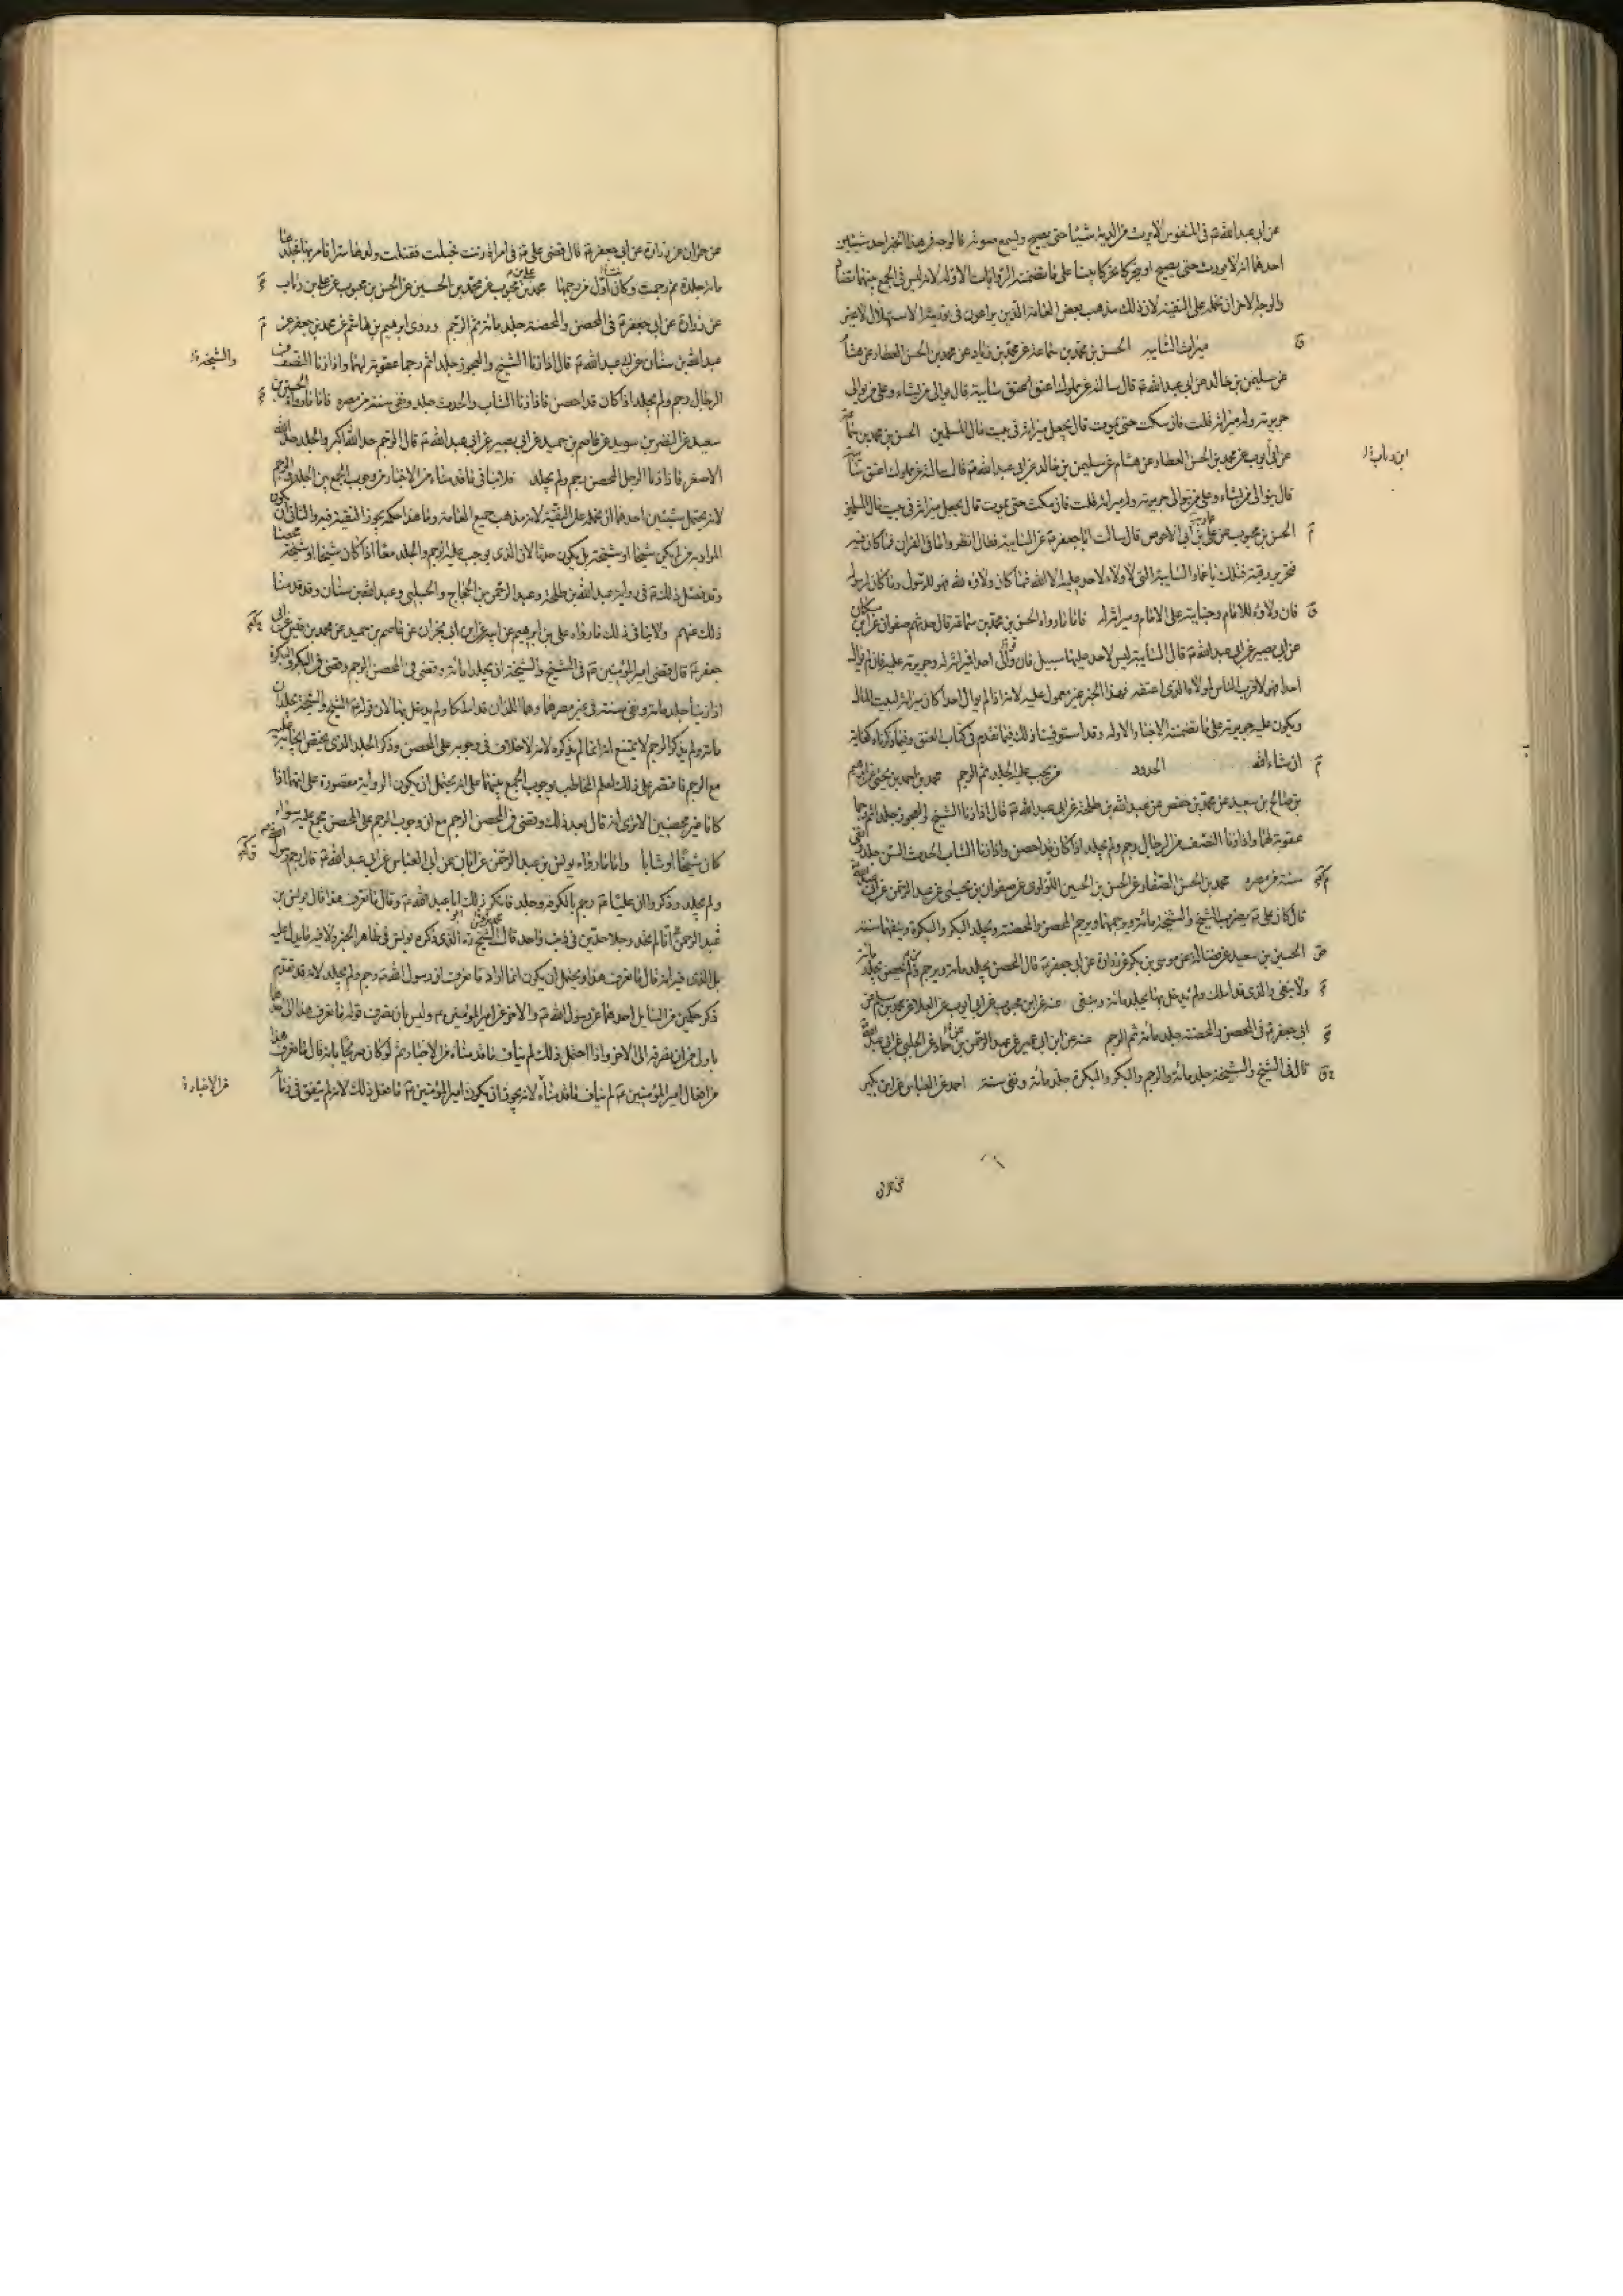 عن ابى عبد الله ع فى المنفوس لا يرث من الدية شيئا حتى يصيح ويسمع صوته فالوجه فى هذا الخبر احد شيئين
احدهما انه لا يورث حتى يصيح او يتحرك تحركا بينا على ما تضمنته الروايات الاولة لانه ليس فى الجمع بينهما تضاد
والوجه الاخر ان نحمله على التقية لان ذلك مذهب بعض العامة الذين يراعون فى توريثه الاستهلال لا غير
ميراث السايبة الحسن بن محمد بن سماعة عن محمد بن زياد عن محمد بن الحسن العطار عن هشام
عن سليمن بن خالد عن ابى عبد الله ع قال سالته عن مملوك اعتق سايبة قال يوالى من شاء وعلى من يوالى
جريرته وله ميراثه قلت فان سكت حتى يموت قال يجعل ميراثه فى بيت مال المسلمين الحسن بن محمد بن سماعة
عن ابى ايوب عن محمد بن الحسن العطار عن هشام عن سليمن بن خالد عن ابى عبد الله ع قال سالته عن مملوك اعتق سايبة
قال يتوالى من شاء وعلى من يتوالى جريرته وله ميراثه قلت فان سكت حتى يموت قال يجعل ميراثه فى بيت مال المسلمين
الحسن بن محبوب عن عمار بن ابى الاحوص قال سالت ابا جعفر ع عن السايبة فقال انظروا ما فى القران فما كان فيه
تحرير رقبة فتلك يا عمار السايبة التى لا ولاء لاحد عليه الا الله فما كان ولاؤه لله فهو للرسول وما كان لرسوله
فان ولاؤه للامام وجنايته على الامام وميراثه له فاما ما رواه الحسن بن محمد بن سماعة قال حدثهم صفوان عن ابن مسكان
عن ابى بصير عن ابى عبد الله ع قال السايبة ليس لاحد عليها سبيل فان والى احدا فميراثه له وجريرته عليه فان لم يوال
احدا فهو لاقرب الناس لمولاه الذى اعتقه فهذا الخبر غير معمول عليه لانه اذا لم يوال احدا كان ميراثه لبيت المال
ويكون عليه جريرته على ما تضمنته الاخبار الاولة وقد استوفينا ذلك فيما تقدم فى كتاب العتق وفيما ذكرناه كفاية
ان شاء الله الحدود من يجب عليه الجلد ثم الرجم محمد بن احمد بن يحيى عن ابرهيم
بن صالح بن سعيد عن محمد بن حفص عن عبد الله بن طلحة عن ابى عبد الله ع قال اذا زنا الشيخ والعجوز جلدا ثم رجما
عقوبة لهما واذا زنا النصف من الرجال رجم ولم يجلد اذا كان قد احصن واذا زنا الشاب الحديث السن جلد ونفى
سنة من مصره محمد بن الحسن الصفار عن الحسن بن الحسين اللؤلؤى عن صفوان بن يحيى عن عبد الرحمن عن ابى عبد الله ع
قال كان على ع يضرب الشيخ والشيخة مائة ويرجمهما ويرجم المحصن والمحصنة ويجلد البكر والبكرة وينفيهما سنة
الحسين بن سعيد عن فضالة عن موسى بن بكر عن زرارة عن ابى جعفر ع قال المحصن يجلد مائة ويرجم ومن لم يحصن يجلد مائة
ولا ينفى والذى قد املك ولم يدخل بها يجلد مائة وينفى عنه عن ابن محبوب عن ابى ايوب عن العلا عن محمد بن مسلم عن
ابى جعفر ع فى المحصن والمحصنة جلد مائة ثم الرجم عنه عن ابن ابى عمير عن عبد الرحمن بن حماد عن الحلبى عن ابى عبد الله ع
قال فى الشيخ والشيخة جلد مائة والرجم والبكر والبكرة جلد مائة ونفى سنة احمد عن العباس عن ابن بكير
عن حمران
عن حمران عن زرارة عن ابى جعفر ع قال قضى على ع فى امراة زنت فحبلت فقتلت ولدها سرا فامر بها فجلدها
مائة جلدة ثم رجمت وكان اول من رجمها محمد بن على بن محبوب عن محمد بن الحسين عن الحسن بن محبوب عن على بن رئاب
عن زرارة عن ابى جعفر ع فى المحصن والمحصنة جلد مائة ثم الرجم وروى ابرهيم بن هاشم عن محمد بن جعفر عن
عبد الله بن سنان عن ابى عبد الله ع قال اذا زنا الشيخ والعجوز جلدا ثم رجما عقوبة لهما واذا زنا النصف من
والشيخة
الرجال رجم ولم يجلد اذا كان قد احصن فاذا زنا الشاب والحدث جلد ونفى سنة من مصره فاما ما رواه الحسين بن
سعيد عن النضر بن سويد عن عاصم بن حميد عن ابى بصير عن ابى عبد الله ع قال الرجم حد الله الاكبر والجلد حد الله
الاصغر فاذا زنا الرجل المحصن رجم ولم يجلد فلا ينافى ما قدمناه من الاخبار من وجوب الجمع بين الجلد والرجم
لانه يحتمل شيئين احدهما ان نحمله على التقية لانه مذهب جميع العامة وما هذا حكمه يجوز التقية فيه والثانى ان يكون
المراد به من لم يكن شيخا او شيخة بل يكون حدثا لان الذى يوجب عليه الرجم والجلد معا اذا كان شيخا او شيخة محصنا
وقد فصل ذلك ع فى رواية عبد الله بن طلحة وعبد الرحمن بن الحجاج والحلبى وعبد الله بن سنان وقد قدمنا
ذلك عنهم ولا ينافى ذلك ما رواه على بن ابرهيم عن ابيه عن ابن ابى نجران عن عاصم بن حميد عن محمد بن قيس عن ابى
جعفر ع قال قضى امير المؤمنين ع فى الشيخ والشيخة ان يجلدا مائة وقضى فى المحصن الرجم وقضى فى البكر والبكرة
اذا زنيا جلد مائة ونفى سنة فى غير مصرهما وهما اللذان قد املكا ولم يدخل بها لان قوله ع الشيخ والشيخة يجلدان
مائة ولم يذكر الرجم لا يمتنع انه انما لم يذكره لانه لا خلاف فى وجوبه على المحصن وذكر الجلد الذى يختص بايجابه عليه
مع الرجم فاقتصر على ذلك لعلم المخاطب بوجوب الجمع بينهما على انه يحتمل ان يكون الرواية مقصورة على انهما اذا
كانا غير محصنين الا ترى انه قال بعد ذلك وقضى فى المحصن الرجم مع ان وجوب الرجم على المحصن مجمع عليه سواء
كان شيخا او شابا واما ما رواه يونس بن عبد الرحمن عن ابان عن ابى العباس عن ابى عبد الله ع قال رجم رسول الله
ولم يجلد وذكروا ان عليا ع رجم بالكوفة وجلد فانكر ذلك ابا عبد الله ع وقال ما نعرف هذا قال يونس بن
عبد الرحمن اى لم يحد رجلا حدين فى ذنب واحد قال الشيخ ره الذى ذكره يونس فى ظاهر الخبر ولا فيه ما يدل عليه
بل الذى فيه انه قال ما نعرف هذا ويحتمل ان يكون انما اراد ما نعرف ان رسول الله ص رجم ولم يجلد لانه قد تقدم
ذكر حكمين من السايل احدهما عن رسول الله ص والاخر عن امير المؤمنين ع وليس بان يصرف قوله ما نعرف هذا الى احدهما
باولى من ان يصرفه الى الاخر واذا احتمل ذلك لم يناف ما قدمناه من الاخبار ثم لو كان صريحا بانه قال ما نعرف هذا
من افعال امير المؤمنين ع لم يناف ما قدمناه لانه يجوز ان يكون امير المؤمنين ع ما فعل ذلك لانه لم يتفق فى زمانه
من الاخبار